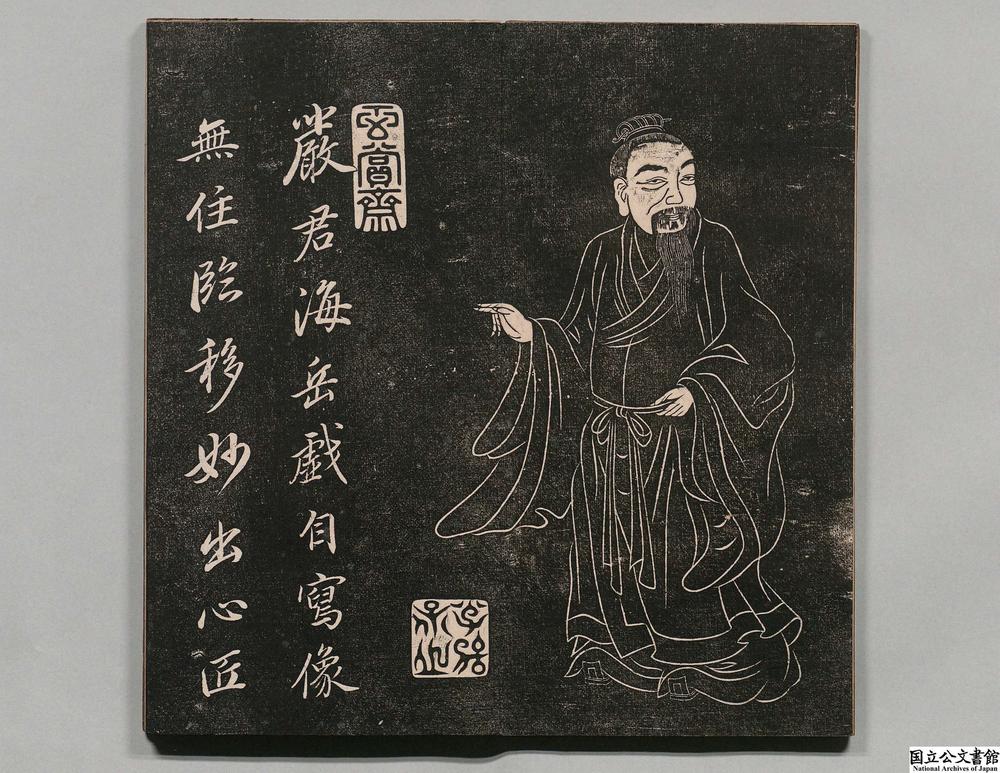 玄賞齋
嚴君海岳戲自寫像
無住臨移妙出心匠
国立公文書館
National Archives of Japan